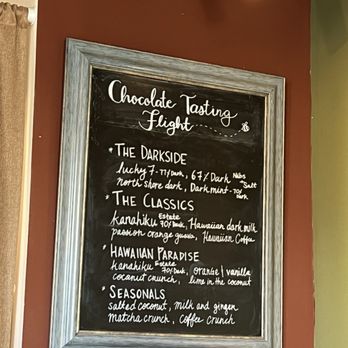 Chocolate Tasting
Flight
* THE DARKSIDE
lucky 7 - 77% Dark, 67% Dark Nibs + Salt
north shore dark, Dark mint - 70% Dark
* THE CLASSICS
Kanahiku Estate 70% Dark, Hawaiian dark milk
passion orange guava, Hawaiian Coffee
* HAWAIIAN PARADISE
Kanahiku Estate 70% Dark, orange | vanilla
coconut crunch, lime in the coconut
* SEASONALS
salted coconut, milk and ginger
matcha crunch, coffee crunch